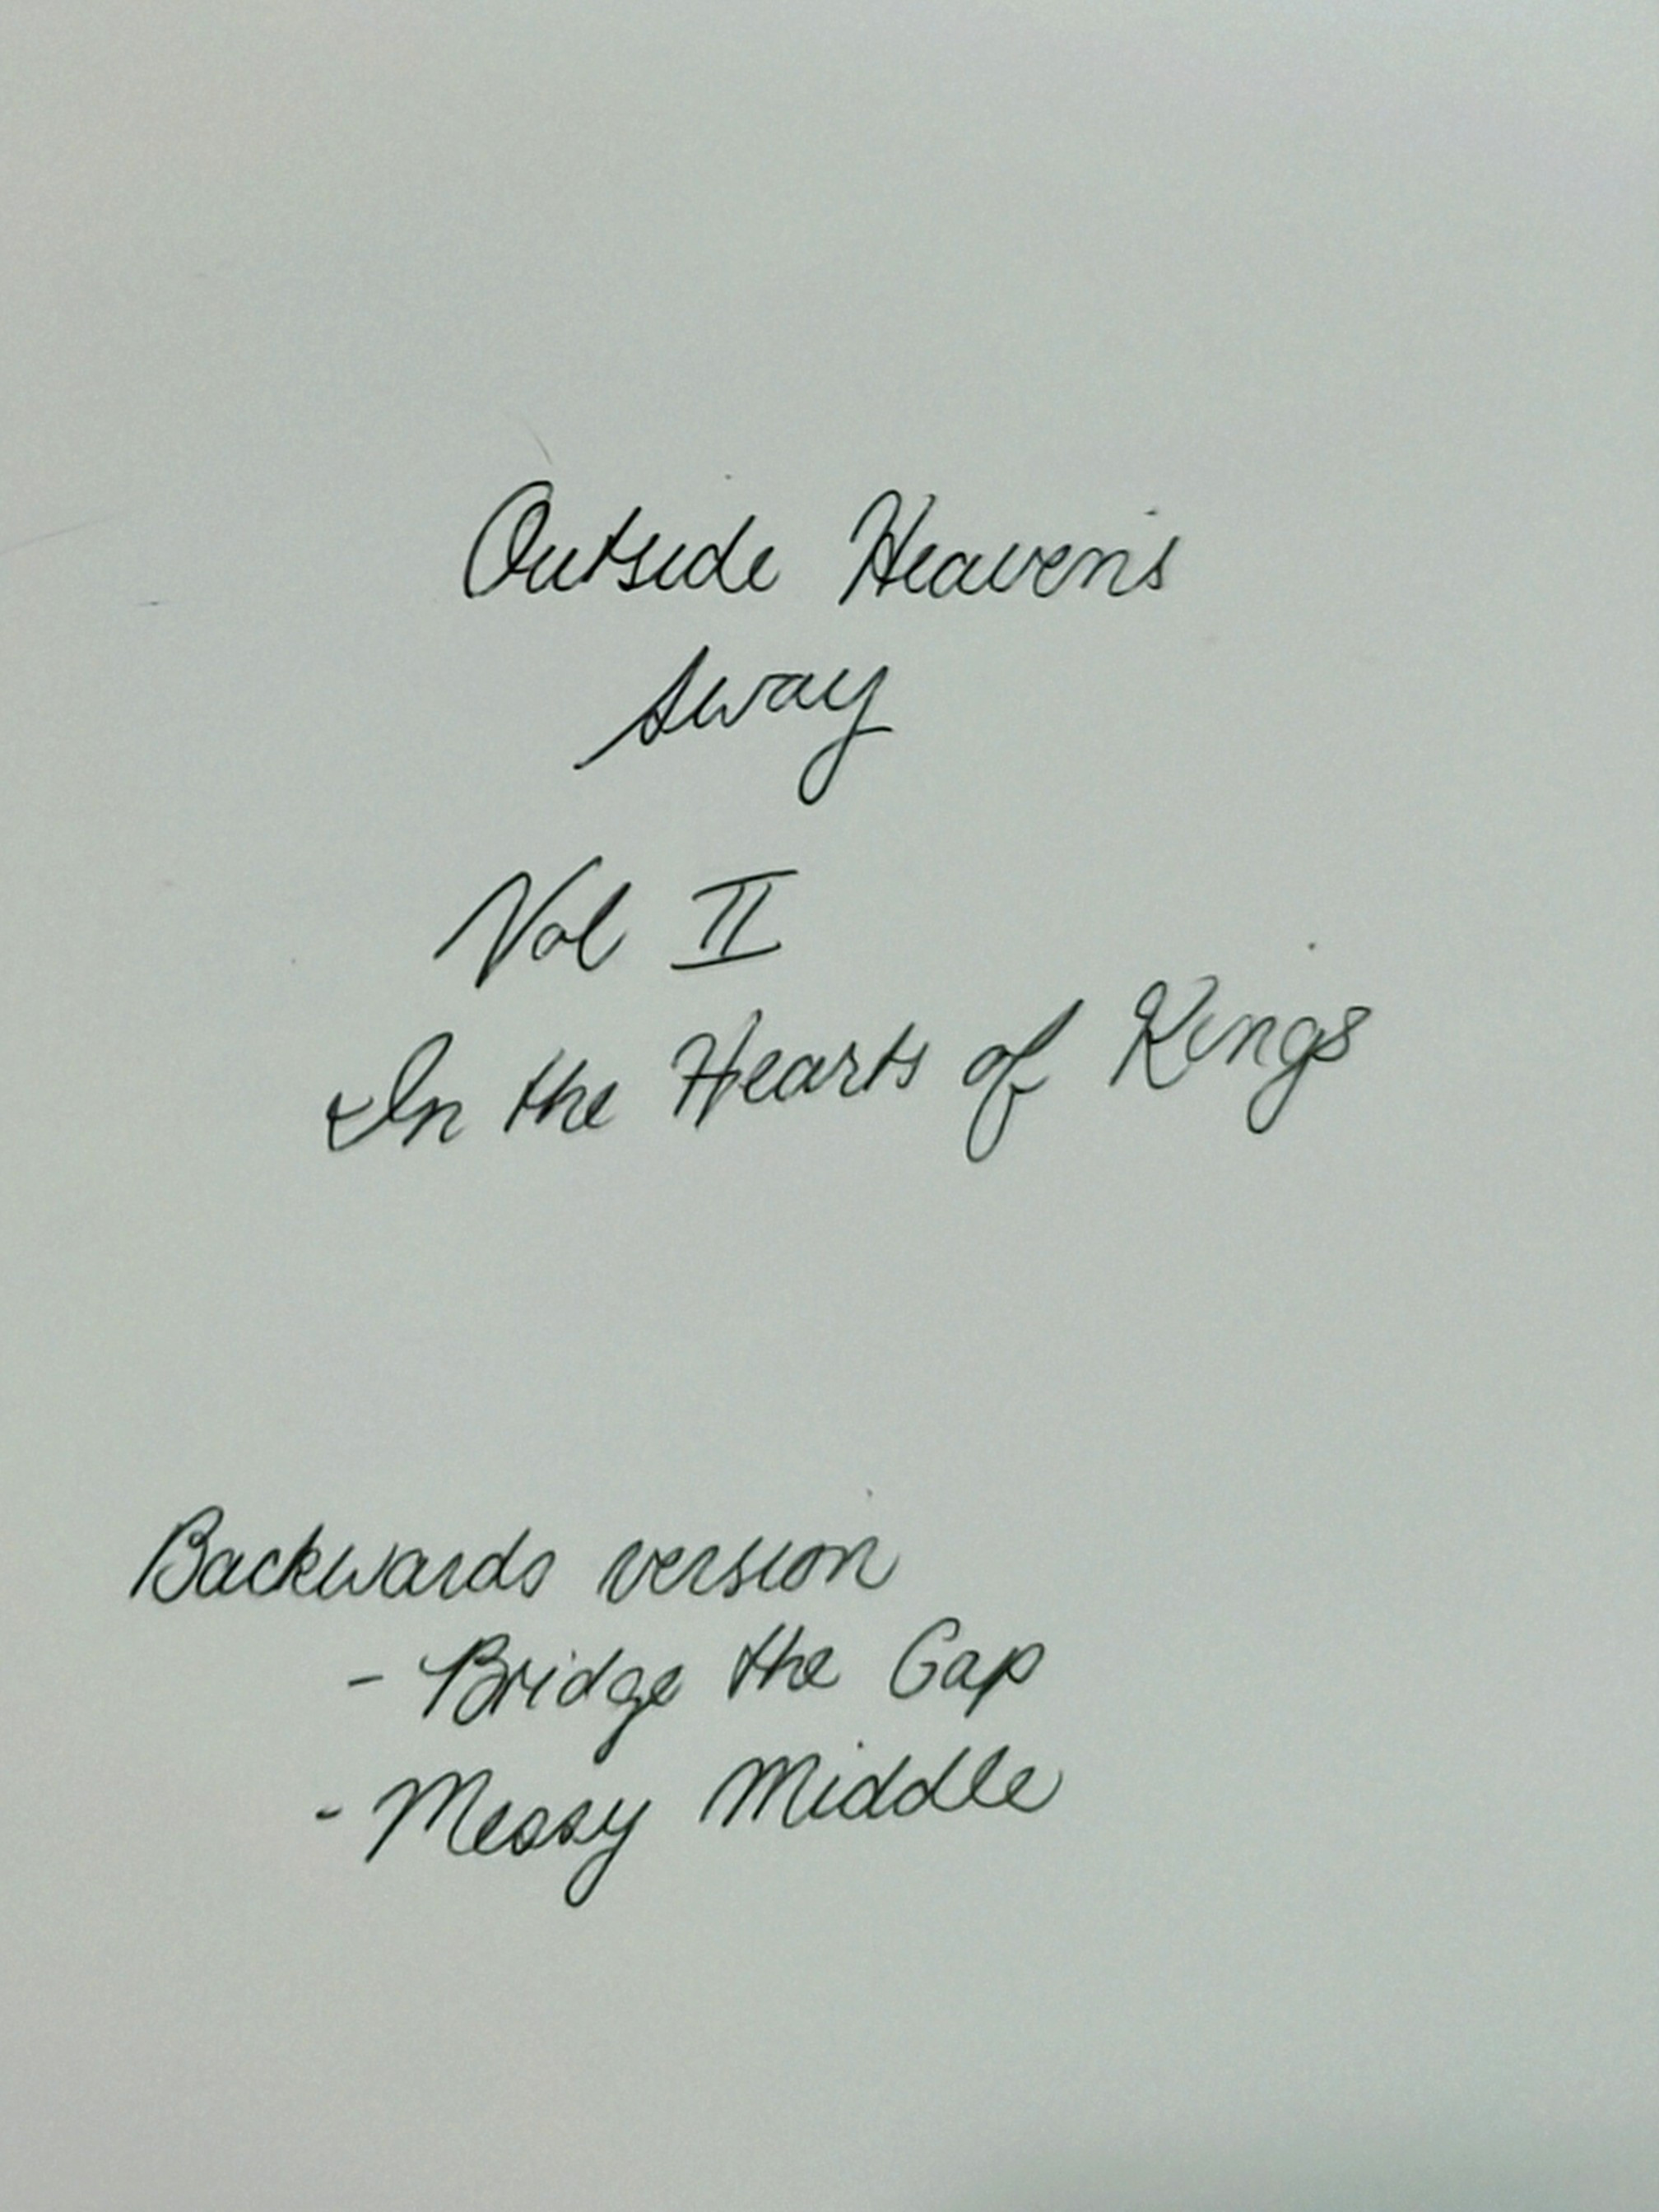 Outside Heaven's
Sway
Vol II
In the Hearts of Kings
Backwards version
- Bridge the Gap
- Messy Middle